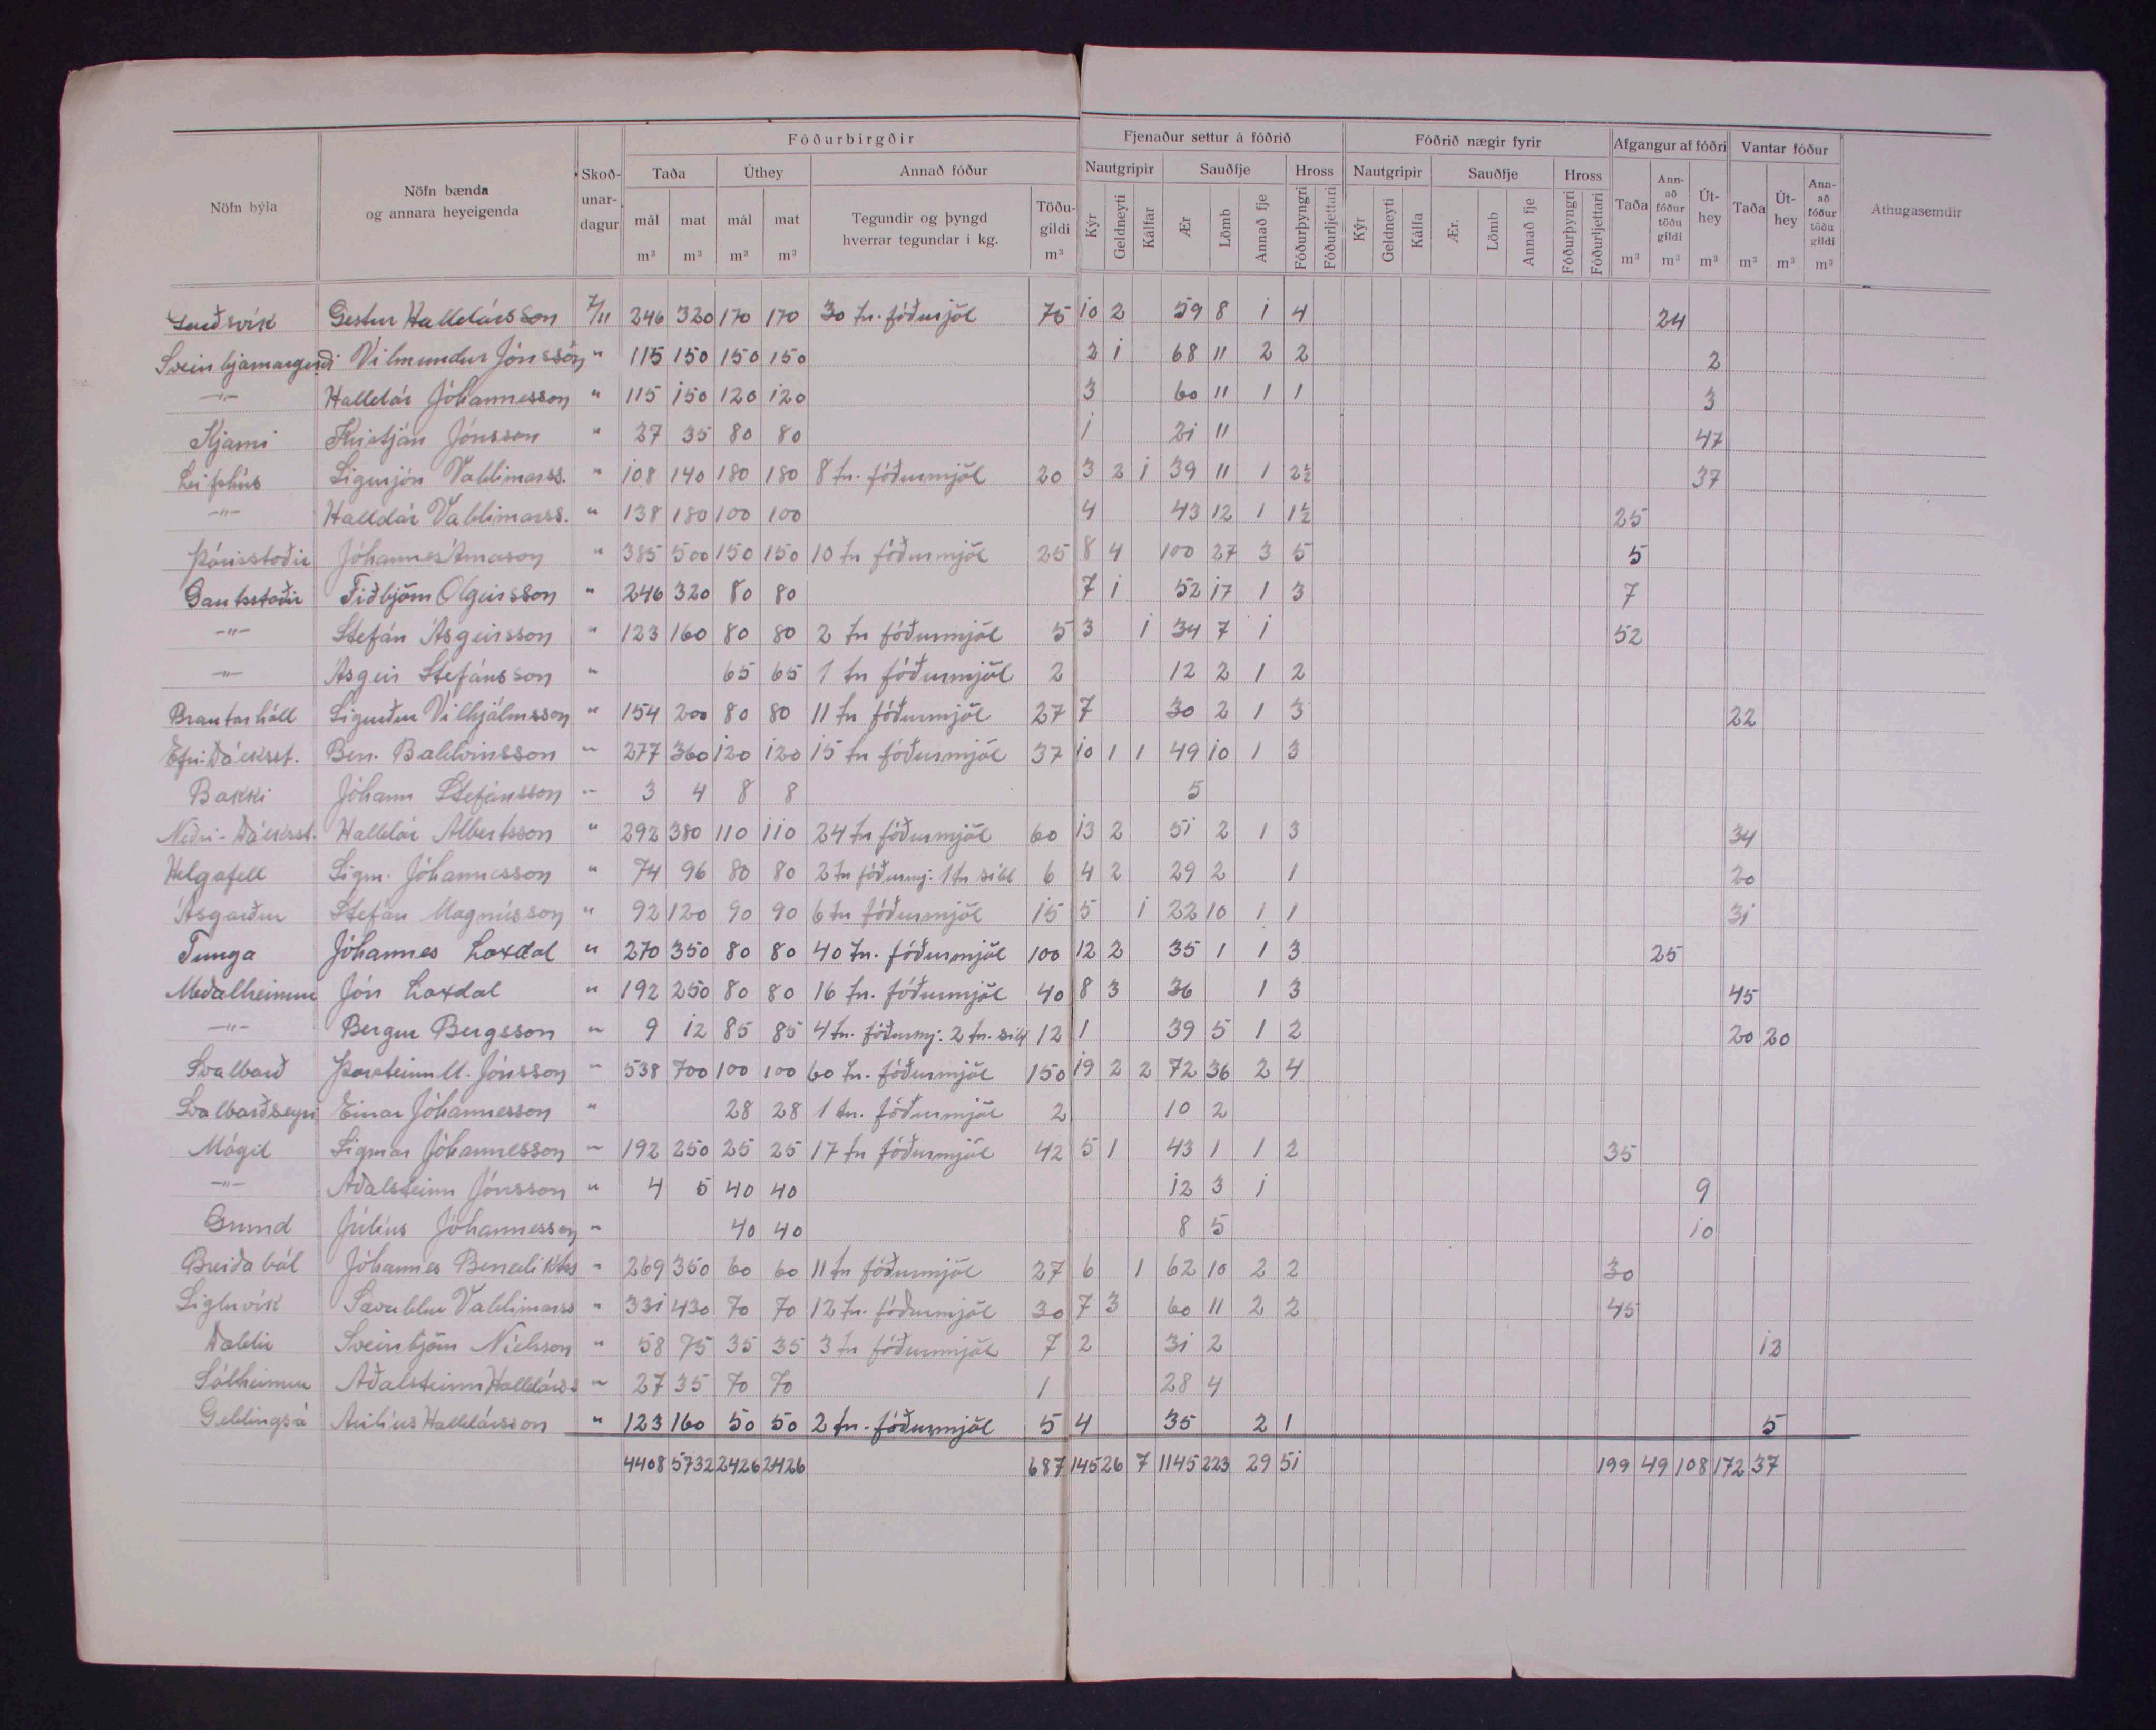 Fóðurbirgðir Fjenaður settur á fóðrið Fóðrið nægir fyrir Afgangur af fóðri Vantar fóður
Nöfn býla Nöfn bænda og annara heyeigenda Skoð-unar-dagur Taða Úthey Annað fóður Nautgripir Sauðfje Hross Nautgripir Sauðfje Hross Taða Ann-að fóður töðu gildi Út-hey Taða Út-hey Ann-að fóður töðu gildi Athugasemdir
mál mat mál mat Tegundir og þyngd hverrar tegundar í kg. Töðu-gildi Kýr Geldneyti Kálfar Ær Lömb Annað fje Fóðurþyngri Fóðurljettari Kýr Geldneyti Kálfa Ær. Lömb Annað fje Fóðurþyngri Fóðurljettari
m³ m³ m³ m³ m³ m³ m³ m³ m³ m³ m³
Gestur Halldórsson 7/11 246 320 170 170 30 tn. fóðurmjöl 75 10 2 59 8 1 4 24
Sveinbjarnargerði Vilmundur Jónsson " 115 150 150 150 2 1 68 11 2 2 2
-"- Halldór Jóhannesson " 115 150 120 120 3 60 11 1 1 3
Kjarni Kristján Jónsson " 27 35 80 80 1 21 11 47
Leifshús Sigurjón Valdimarss. " 108 140 180 180 8 tn. fóðurmjöl 20 3 2 1 39 11 1 2½ 37
-"- Halldór Valdimarss. " 138 180 100 100 4 43 12 1 1½ 25
Þórisstaðir Jóhannes Árnason " 385 500 150 150 10 tn fóðurmjöl 25 8 4 100 27 3 5 5
Gautsstaðir Friðbjörn Olgeirsson " 246 320 80 80 7 1 52 17 1 3 7
-"- Stefán Ásgeirsson " 123 160 80 80 2 tn fóðurmjöl 5 3 1 34 7 1 52
-"- Ásgeir Stefánsson " 65 65 1 tn fóðurmjöl 2 12 2 1 2
Brautarhóll Sigurður Vilhjálmsson " 154 200 80 80 11 tn fóðurmjöl 27 7 30 2 1 3 22
Efri-Dálksst. Ben. Baldvinsson " 277 360 120 120 15 tn fóðurmjöl 37 10 1 1 49 10 1 3
Bakki Jóhann Stefánsson " 3 4 8 8 5
Neðri-Dálksst. Halldór Albertsson " 292 380 110 110 24 tn fóðurmjöl 60 13 2 51 2 1 3 34
Helgafell Sigm. Jóhannesson " 74 96 80 80 2 tn fóðurmj. 1 tn síld 6 4 2 29 2 1 20
Ásgarður Stefán Magnússon " 92 120 90 90 6 tn fóðurmjöl 15 5 1 22 10 1 1 31
Tunga Jóhannes Laxdal " 270 350 80 80 40 tn. fóðurmjöl 100 12 2 35 1 1 3 25
Meðalheimur Jón Laxdal " 192 250 80 80 16 tn. fóðurmjöl 40 8 3 36 1 3 45
-"- Bergur Bergsson " 9 12 85 85 4 tn. fóðurmj. 2 tn. síld 12 1 39 5 1 2 20 20
Svalbarð Þorsteinn M. Jónsson " 538 700 100 100 60 tn. fóðurmjöl 150 19 2 2 72 36 2 4
Svalbarðseyri Einar Jóhannesson " 28 28 1 tn. fóðurmjöl 2 10 2
Mógil Sigmar Jóhannesson " 192 250 25 25 17 tn fóðurmjöl 42 5 1 43 1 1 2 35
-"- Aðalsteinn Jónsson " 4 5 40 40 12 3 1 9
Grund Júlíus Jóhannesson " 40 40 8 5 10
Breiðaból Jóhannes Benediktss " 269 350 60 60 11 tn fóðurmjöl 27 6 1 62 10 2 2 30
Sigluvík Sævaldur Valdimarss " 331 430 70 70 12 tn. fóðurmjöl 30 7 3 60 11 2 2 45
Dældir Sveinbjörn Níelsson " 58 75 35 35 3 tn fóðurmjöl 7 2 31 2 12
Sólheimar Aðalsteinn Halldórss " 27 35 70 70 1 28 4
Geldingsá Halldórsson " 123 160 50 50 2 tn. fóðurmjöl 5 4 35 2 1 5
4408 5732 2426 2426 687 145 26 7 1145 223 29 51 199 49 108 172 37